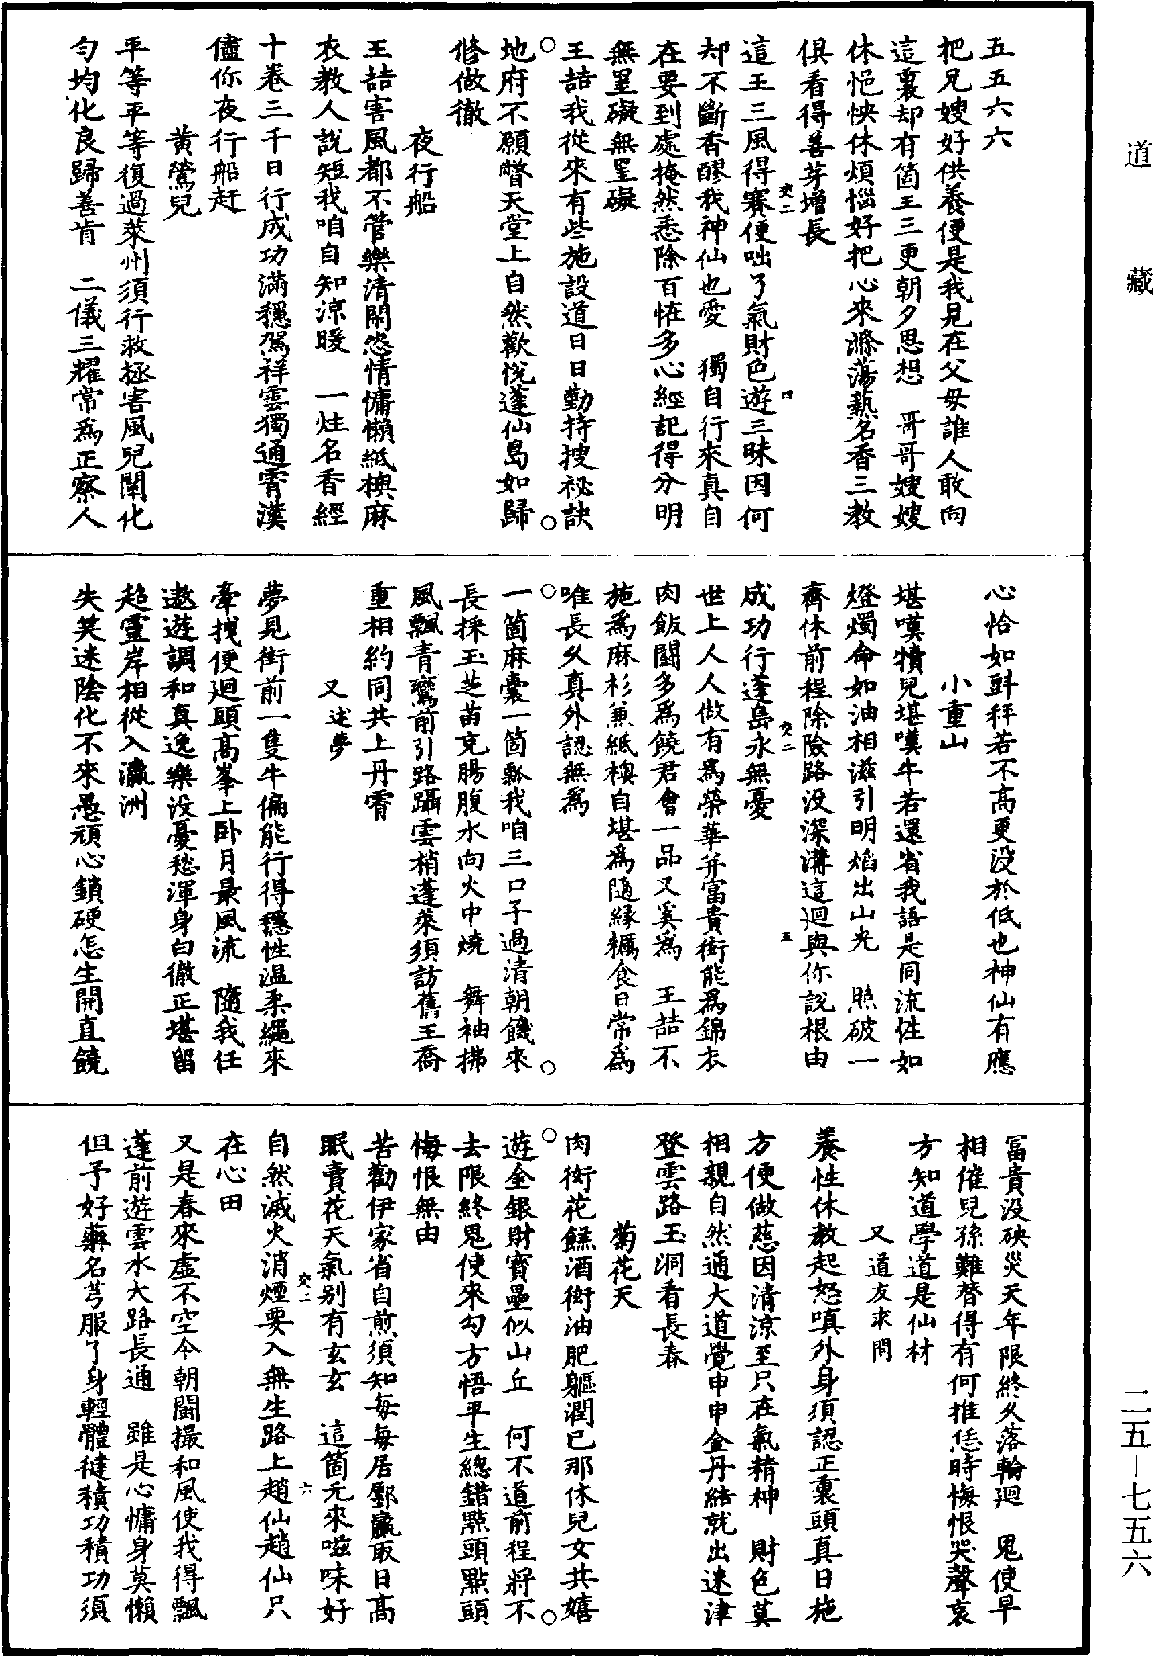 道藏
五五六六
把兄嫂好供養便是我見在父母誰人敢向
這裏却有箇王三更朝夕思想　哥哥嫂嫂
休悒怏休煩惱好把心來滌蕩爇名香三教
俱看得善芽增長
這王三風得賽便咄了氣財色遊三昧因何
却不斷香醪我神仙也愛　獨自行來真自
在要到處掩然悉除百恠多心經記得分明
無罣礙無罣礙
王喆我從來有些施設道日日勤持搜祕訣
地府不願瞥天堂上自然歡悅蓬仙島如歸
脩做徹
夜行船
王喆害風都不管樂清閑恣情慵懶紙襖麻
衣教人說短我咱自知涼暖　一炷名香經
十卷三千日行成功滿穩駕祥雲獨通霄漢
儘你夜行船赶
黃鶯兒
平等平等復過萊州須行救拯害風兒闡化
勻均化良歸善肯　二儀三耀常為正察人
心恰如㪷秤若不高更没於低也神仙有應
小重山
堪嘆犢兒堪嘆牛若還省我語是同流性如
燈燭命如油相滋引明焰出山光　照破一
齊休前程除險路没深溝這迴與你說根由
成功行蓬島永無憂
世上人人做有為榮華并富貴衒能為錦衣
肉飯鬭多為饒君會一品又奚為　王喆不
施為麻衫兼紙襖自堪為隨緣糲食日常為
唯長久真外認無為
一箇麻囊一箇瓢我咱三口子過清朝饑來
長採玉芝苗充腸腹水向火中燒　舞袖拂
風飄青鸞前引路躡雲梢蓬萊須訪舊王喬
重相約同共上丹霄
又述夢
夢見街前一隻牛偏能行得穩性温柔繩來
牽拽便迴頭高峯上卧月最風流　隨我任
遨遊調和真逸樂没憂愁渾身白徹正堪留
超靈岸相從入瀛洲
失笑迷陰化不來愚頑心鎖硬怎生開直饒
冨貴没殃災天年限終久落輪迴　鬼使早
相催兒孫難替得有何推恁時悔恨哭聲哀
方知道學道是仙材
又道友求問
養性休教起怒嗔外身須認正裏頭真日施
方便做慈因清涼至只在氣精神　財色莫
相親自然通大道覺申申金丹結就出迷津
登雲路玉洞看長春
菊花天
肉衒花餻酒衒油肥軀潤已那休兒女共嬉
遊金銀財寳壘似山丘　何不道前程將不
去限終鬼使來勾方悟平生總錯㸃頭㸃頭
悔恨無由
苦勸伊家省自煎須知每每居鄽贏取日高
眠賣花天氣别有玄玄　這箇元來嗞味好
自然滅火消煙要入無生路上趙仙趙仙只
在心田
又是春來虛不空今朝閤撮和風使我得飄
蓬前遊雲水大路長通　雖是心慵身莫懶
但予好藥名芎服了身輕體徤積功積功須
二五—七五六